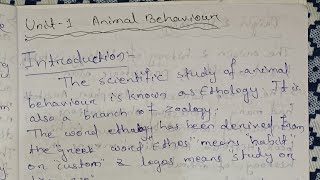 Unit-1 Animal Behaviour
Introduction-
The scientific study of animal
behaviour is known as Ethology. It is
also a branch of zoology.
The word ethology has been derived from
the "greek" word Ethos means 'habit'
or custom & logos means study or